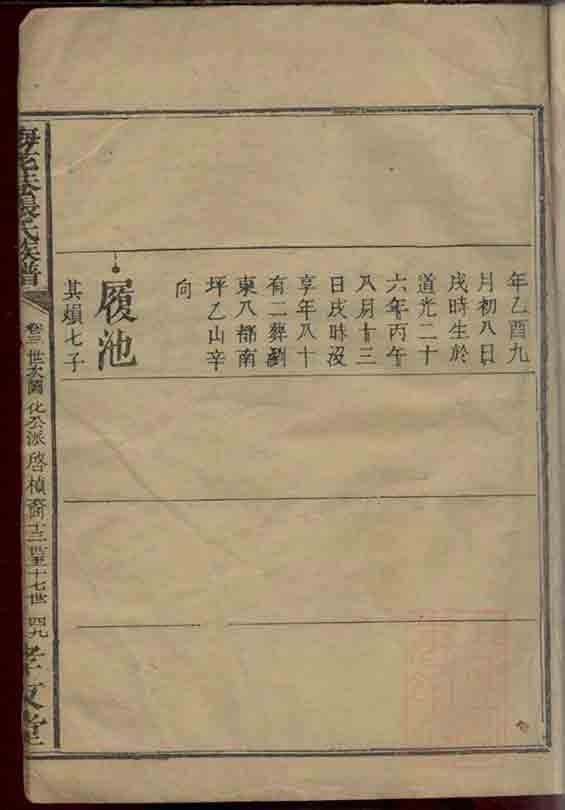 年乙酉九
月初八日
戌時生於
道光二十
六年丙午
八月廿三
日戌時没
享年八十
有二葬劉
東八都南
坪乙山辛
向
履池
其煩七子
張氏族譜
卷三 世次圖 化公派 啓楨裔 十三世至十七世 四九
孝友堂